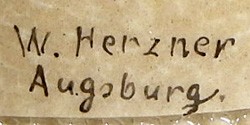 W. Herzner
Augsburg.